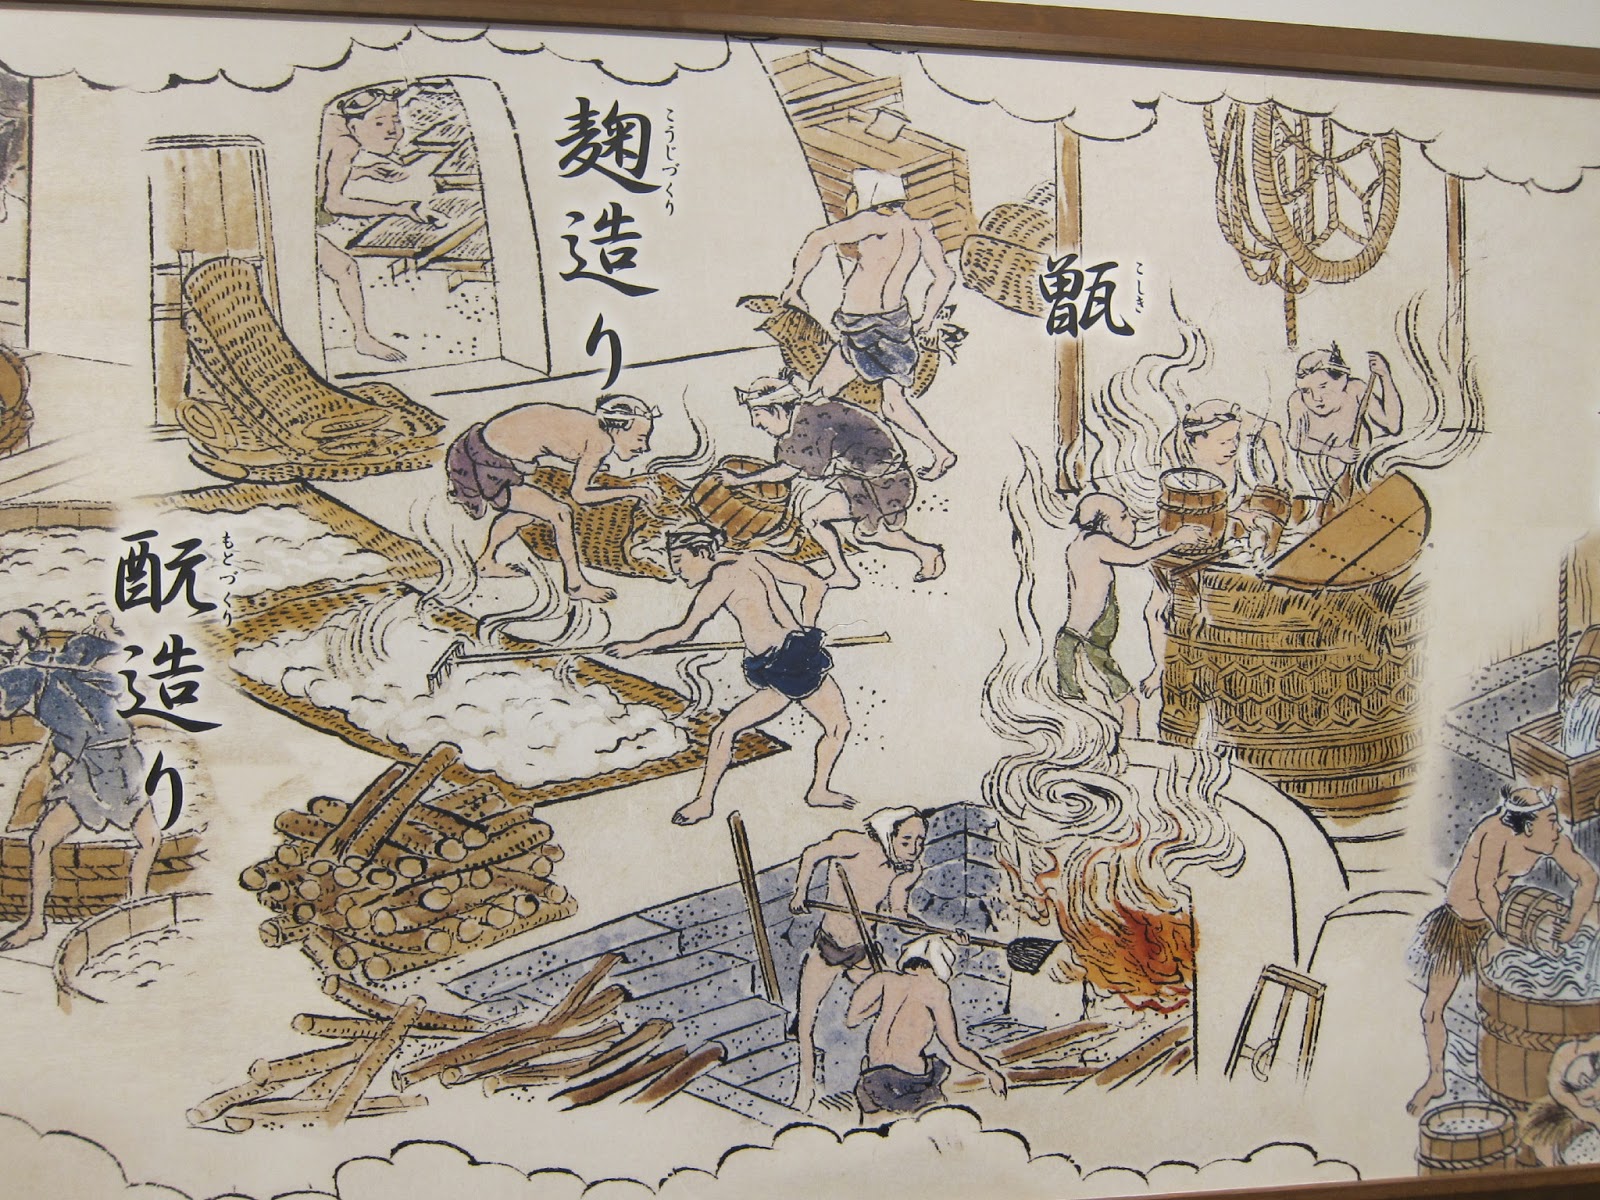 甑
こしき
麹造り
こうじづくり
酛造り
もとづくり